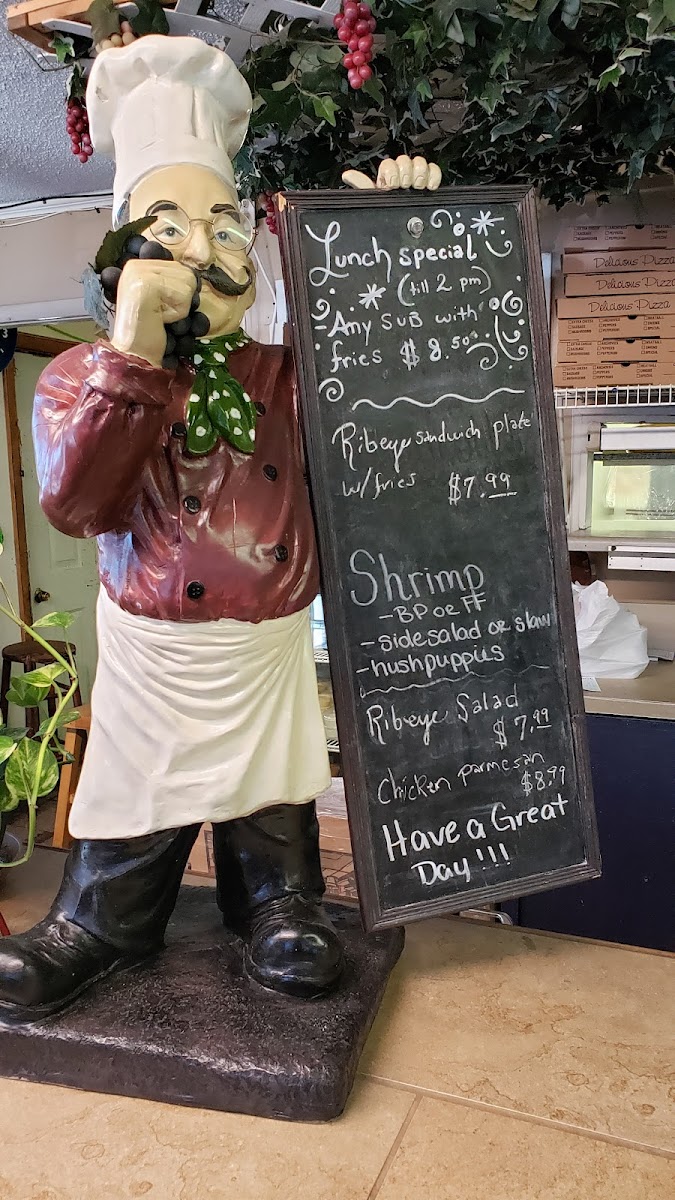 Lunch special
(till 2 pm)
-Any SUB with
fries $8.50
Ribeye sandwich plate
w/fries $7.99
Shrimp
-BP or FF
-side salad or slaw
-hushpuppies
Ribeye Salad
$7.99
Chicken parmesan
$8.99
Have a Great
Day!!!
Delicious Pizza
Delicious Pizza
Delicious Pizza